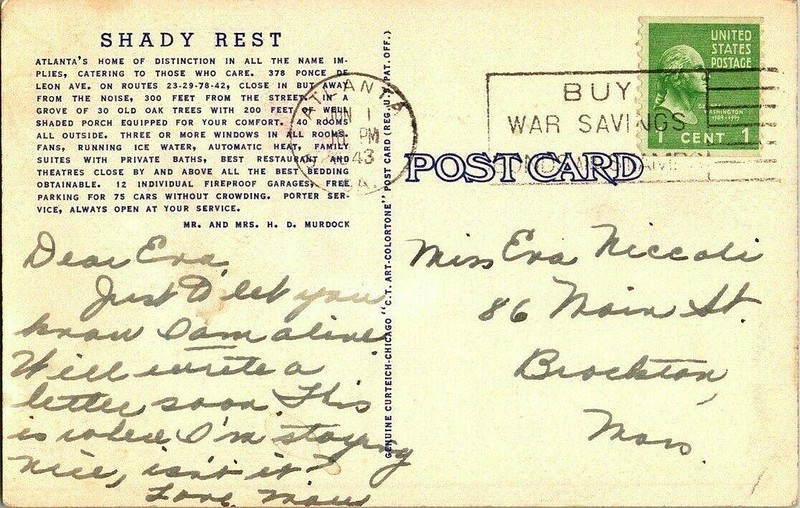 SHADY REST
ATLANTA'S HOME OF DISTINCTION IN ALL THE NAME IM-
PLIES, CATERING TO THOSE WHO CARE. 378 PONCE DE
LEON AVE. ON ROUTES 23-29-78-42, CLOSE IN BUT AWAY
FROM THE NOISE, 300 FEET FROM THE STREET. IN A
GROVE OF 30 OLD OAK TREES WITH 200 FEET OF WELL
SHADED PORCH EQUIPPED FOR YOUR COMFORT. 40 ROOMS
ALL OUTSIDE. THREE OR MORE WINDOWS IN ALL ROOMS.
FANS, RUNNING ICE WATER, AUTOMATIC HEAT, FAMILY
SUITES WITH PRIVATE BATHS, BEST RESTAURANT AND
THEATRES CLOSE BY AND ABOVE ALL THE BEST BEDDING
OBTAINABLE. 12 INDIVIDUAL FIREPROOF GARAGES, FREE
PARKING FOR 75 CARS WITHOUT CROWDING. PORTER SER-
VICE, ALWAYS OPEN AT YOUR SERVICE.
MR. AND MRS. H. D. MURDOCK
Dear Eva,
Just to let you
know I am alive
Will write a
letter soon. This
is where I'm staying
nice, isn't it?
Love,
GENUINE CURTEICH-CHICAGO "C.T. ART-COLORTONE" POST CARD (REG. U.S. PAT. OFF.)
ATLANTA
JUN 1
PM
43
BUY
WAR SAVINGS
UNITED
STATES
POSTAGE
WASHINGTON
1789-1797
1 CENT 1
POST CARD
Miss Eva Niccoli
86 Main St.
Brockton,
Mass.